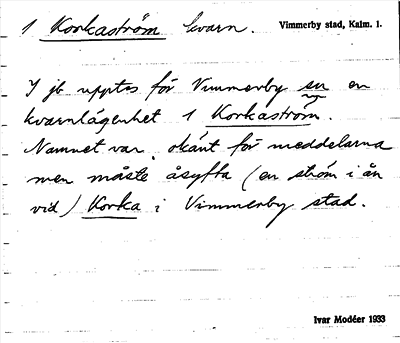 1 Korkaström kvarn.
Vimmerby stad, Kalm. l.
I jb upptes för Vimmerby en
kvarnlägenhet 1 Korkaström.
Namnet var okänt för meddelarna
men måste åsyfta (en ström i ån
vid) Korka i Vimmerby stad.
Ivar Modéer 1933